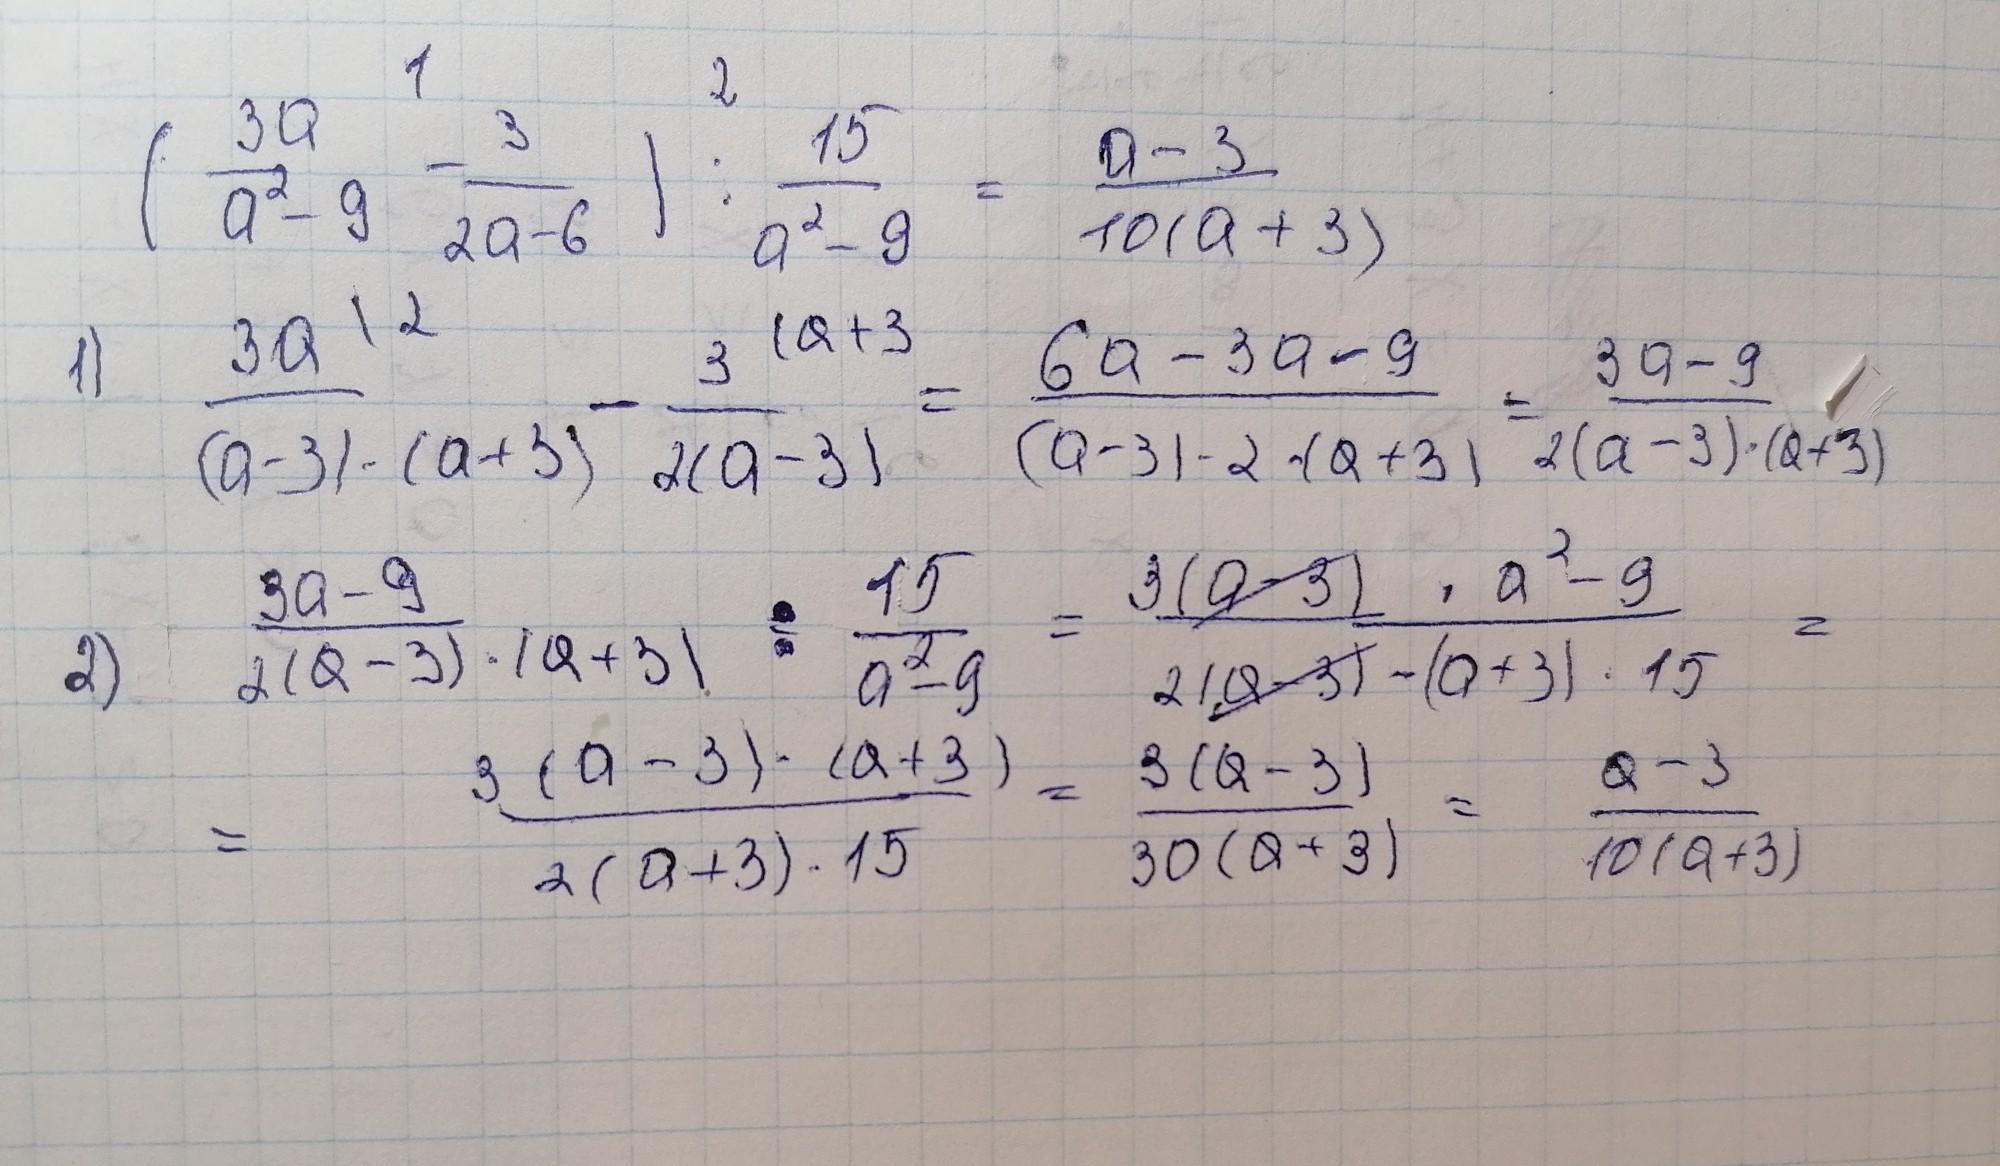 ( 3a/(a²-9) -¹ 3/(2a-6) ) :² 15/(a²-9) = (a-3)/(10(a+3))
1) 3a\2/((a-3)·(a+3)) - 3(a+3/(2(a-3)) = (6a-3a-9)/((a-3)·2·(a+3)) = (3a-9)/(2(a-3)·(a+3))
2) (3a-9)/(2(a-3)·(a+3)) : 15/(a²-9) = (3(a-3)·a²-9)/(2(a-3)·(a+3)·15) =
= (3(a-3)·(a+3))/(2(a+3)·15) = (3(a-3))/(30(a+3)) = (a-3)/(10(a+3))